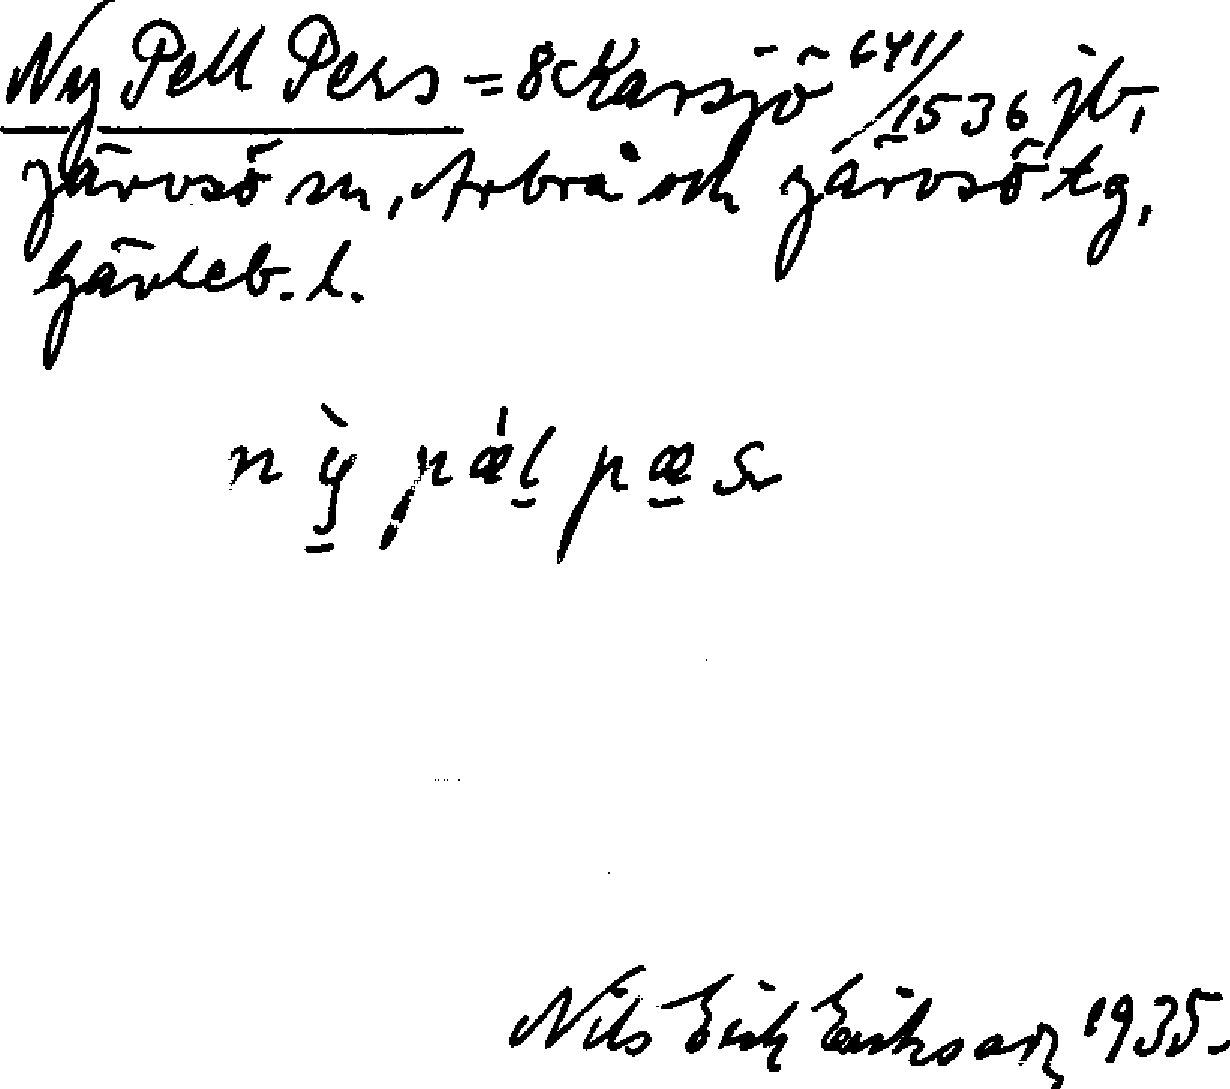 Ny Pell Pers = 8 Karsjö 641/1536 jb,
järvsö sn, Arbrå och järvsö tg,
Gävleb. l.
nỳ pǽl pæs
Nils Erik Eriksson 1935.